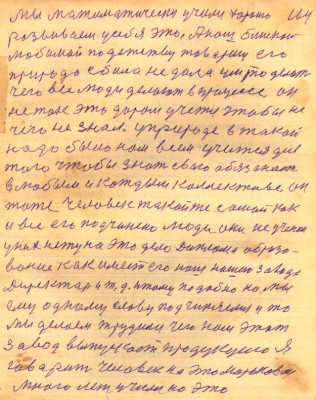 мы математически учили хорошо 164
развиваем у себя это, а наш близкий
любимой по детству товарищ его
природа сбила не дала им то делат
чего все люди делают в процессе он
не так это даром учется чтобы не
чего не знал. у природе в такой
надо было нам всем учится для
того чтобы знат свою обязаност
в любым и каждым коллективе он
тоже человек такой же самой как
и все его подчинено люди они не ученые
у них нету на это дело диплома образо-
вание как имеет его наш нашего завода
директор и т.д. этому подобно но мы
ему одному слову подчиняемся то
мы делаем трудимся чего наш этот
завод выпускает продукцию я
говорит человек на это
много лет учили но это